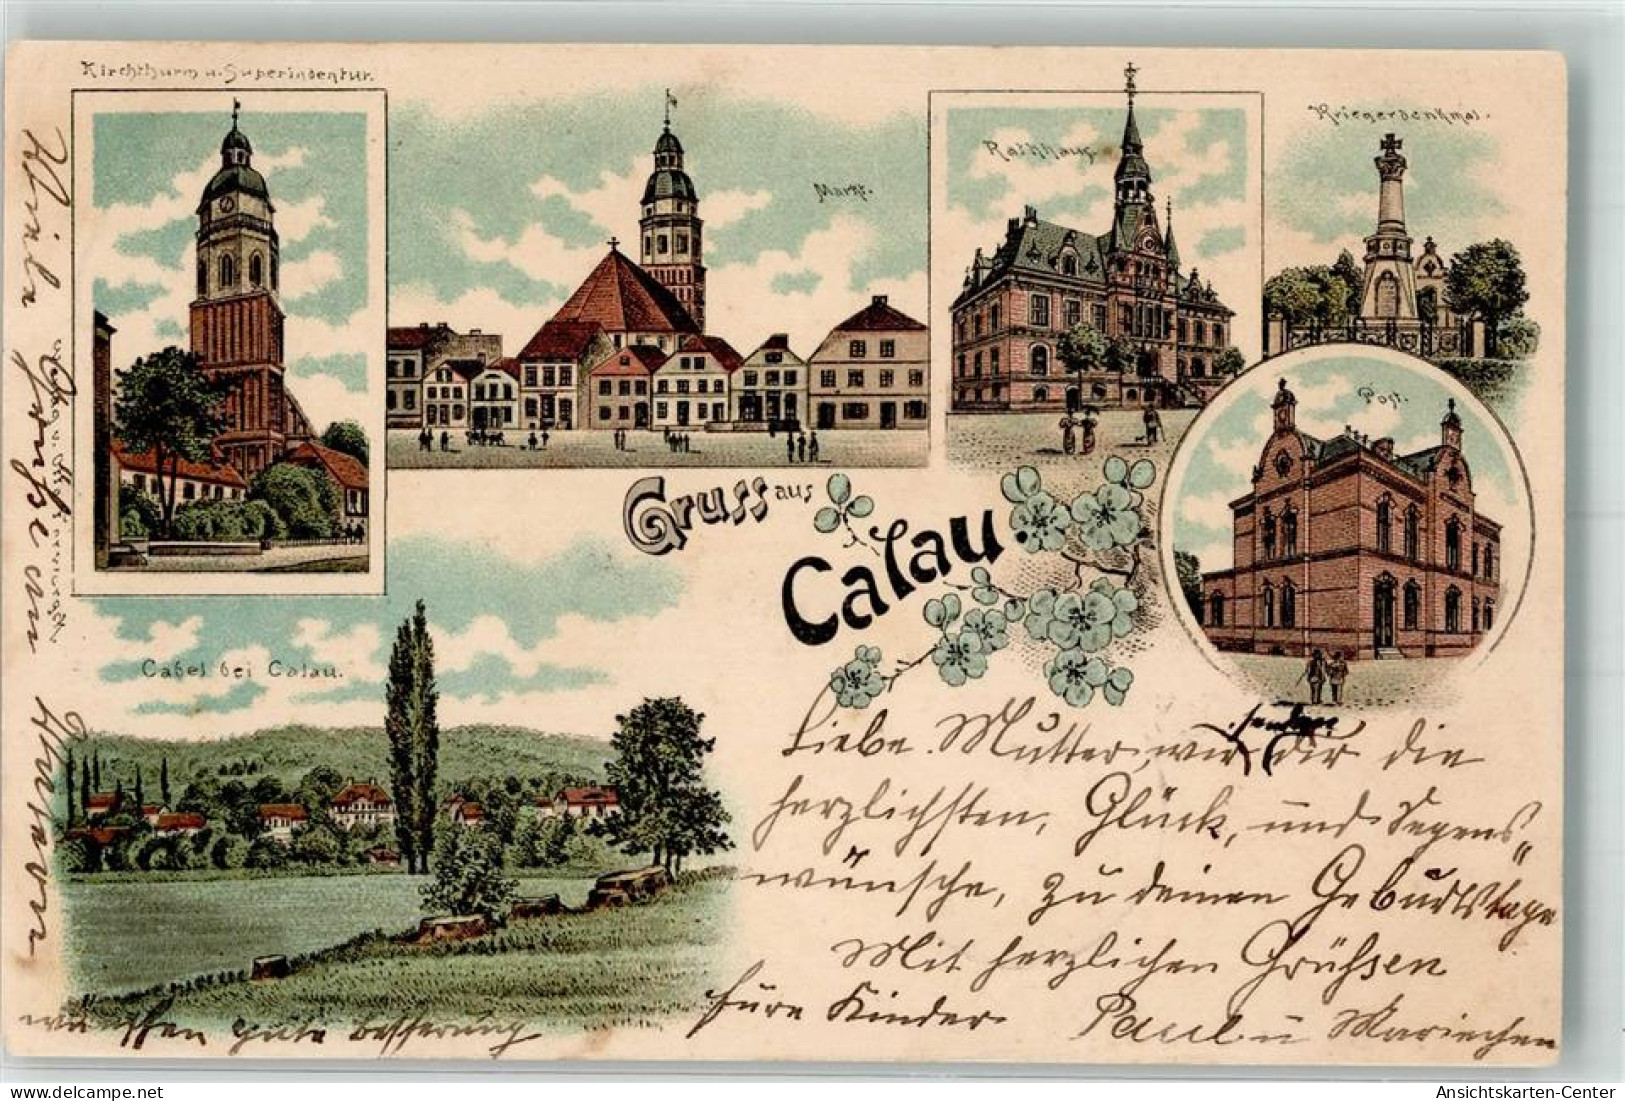 Kirchthurm u. Superindentur.
Markt.
Rathhaus.
Kriegerdenkmal.
Post.
Gruss aus
Calau.
Cabel bei Calau.
senden
Liebe Mutter, wir dir die
herzlichsten, Glück, und Segens„
wünsche, zu deinen Geburtstage
Mit herzlichen Grühsen
füre Kinder Paul u Mariechen
wünschen gute Besserung
Viele Grüße an
Ansichtskarten-Center